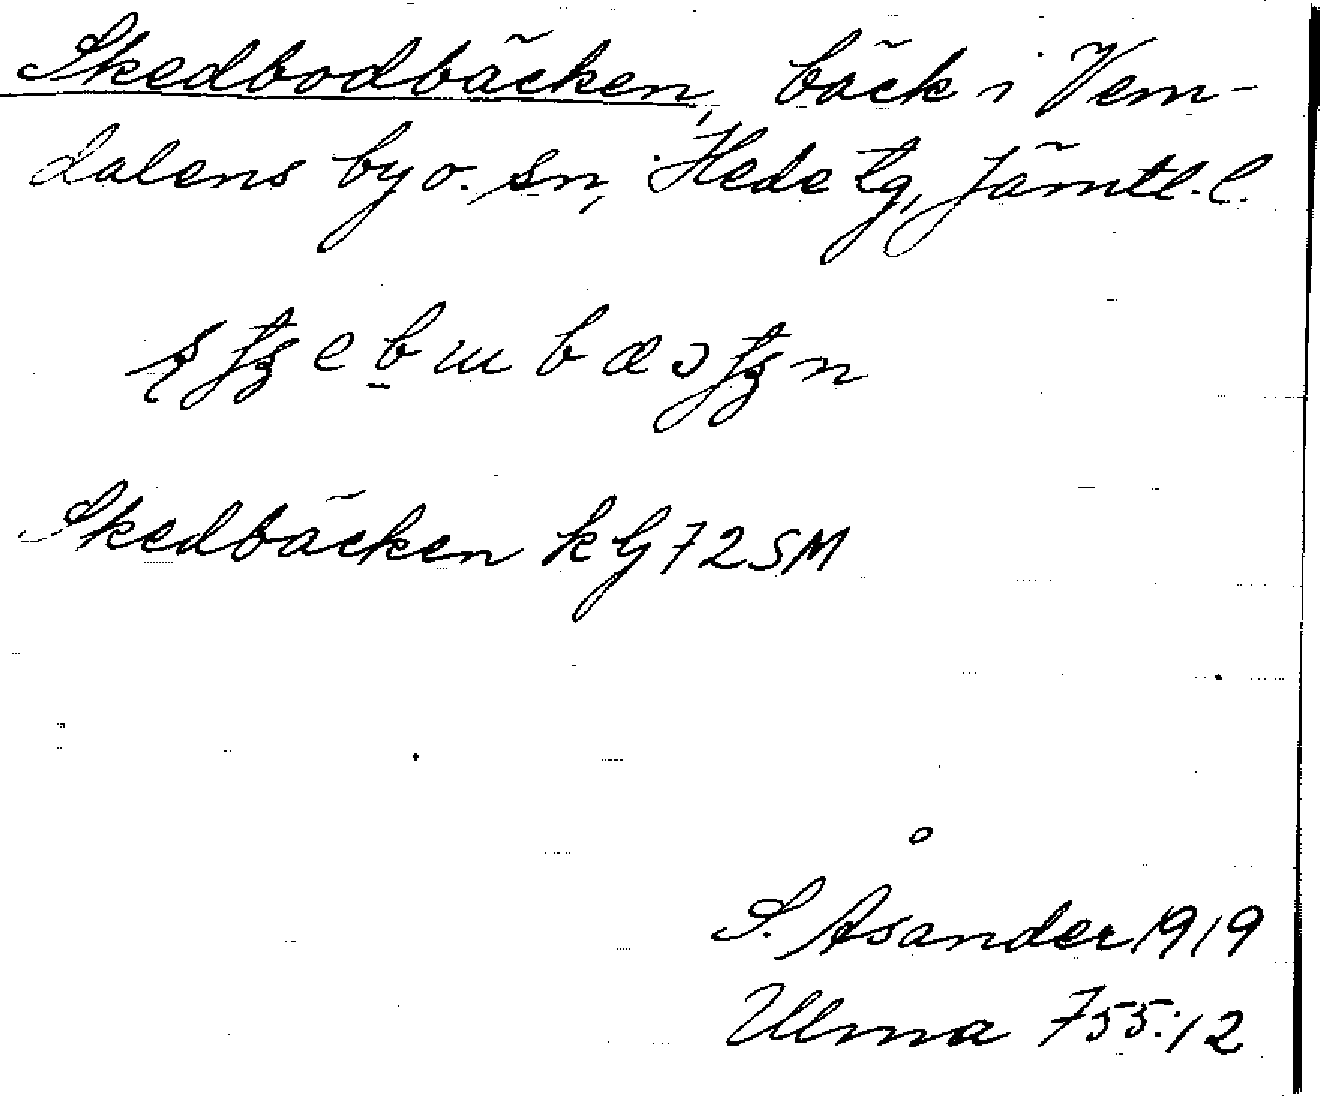 Skedbodbäcken, bäck i Vem-
dalens by o. sn, Hede tg, Jämtl. l.
Skedbäcken kG 72 SM
S. Åsander 1919
Ulma 755:12